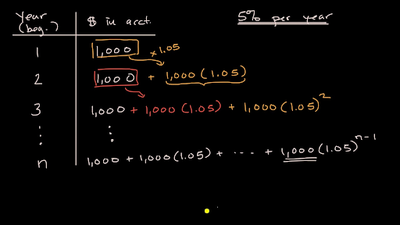 Year (beg.) $ in acct. 5% per year
1 1,000 × 1.05
2 1,000 + 1,000(1.05)
3 1,000 + 1,000(1.05) + 1,000(1.05)²
⋮ ⋮
n 1,000 + 1,000(1.05) + ---- + 1,000(1.05)ⁿ⁻¹